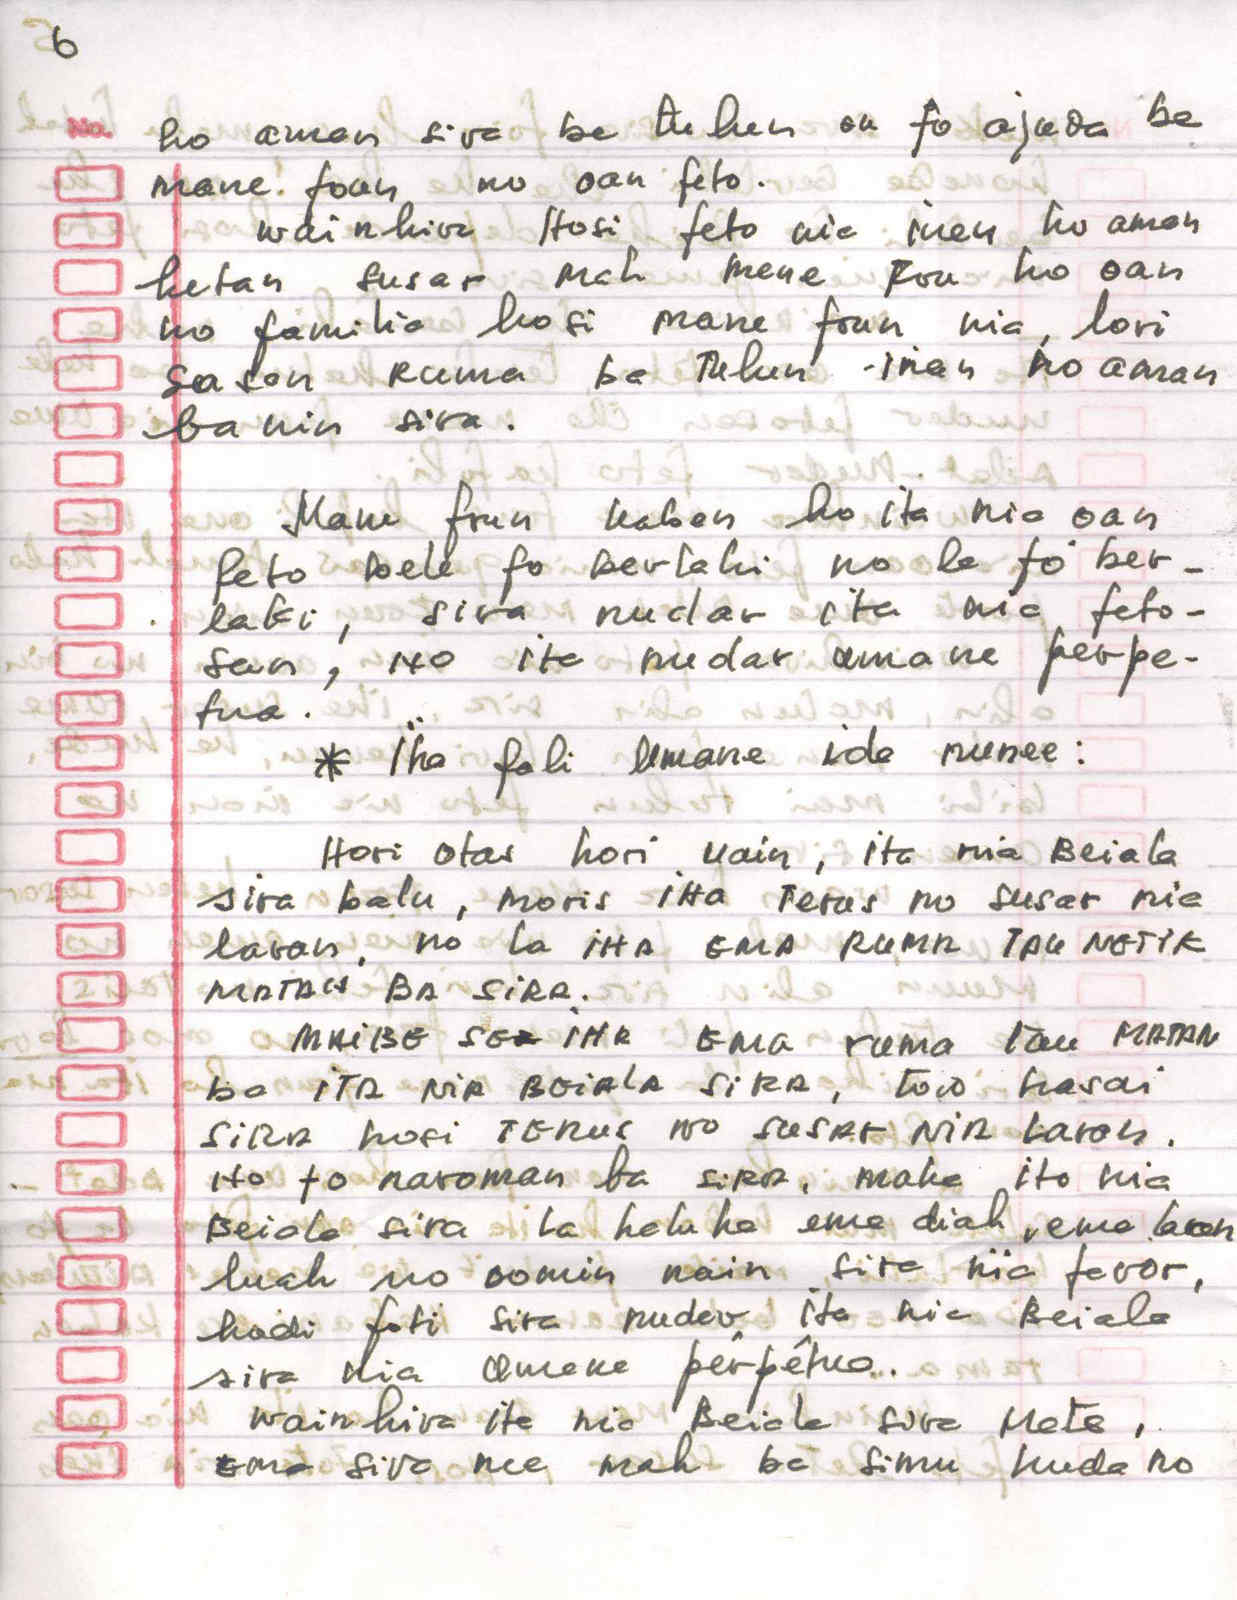 6
No.
ho aman sira ba tulun ou fo ajuda ba
mane foun no oan feto.
wainhira Hosi feto nia inan ho aman
hetan susar mak mane Foun ho oan
no familia hosi mane foun nia, lori
sasan Ruma ba Tulun inan ho aman
banin sira.
Mane foun kaben ho ita nia oan
feto bele fo Berlaki no la fó ber-
laki, sira nudar ita nia feto-
san, HO ita nudar umane perpe-
tua.
* Iha fali Umane ida nunee:
Hori otas hori uain, ita nia Beiala
sira balu, moris iHA Terus no susar nia
laran, no la iHA EMA RUMA TAU NETIK
MATAN BA SIRA.
MAIBE SE iHA EMA ruma tau MATAN
ba ITA NIA BEIALA SIRA, too hasai
SIRA hosi TERUS no SUSAR NIA Laran.
HO fo naroman ba SIRA, maka ita nia
Beiala sira la haluha ema diak, ema laran
luak no domin nain sira nia favor,
hadi foti sira nudar ita nia Beiala
sira nia Umane perpétua.
wainhira ita nia Beiala sira Mate,
Ema sira nee mak ba simu kuda no